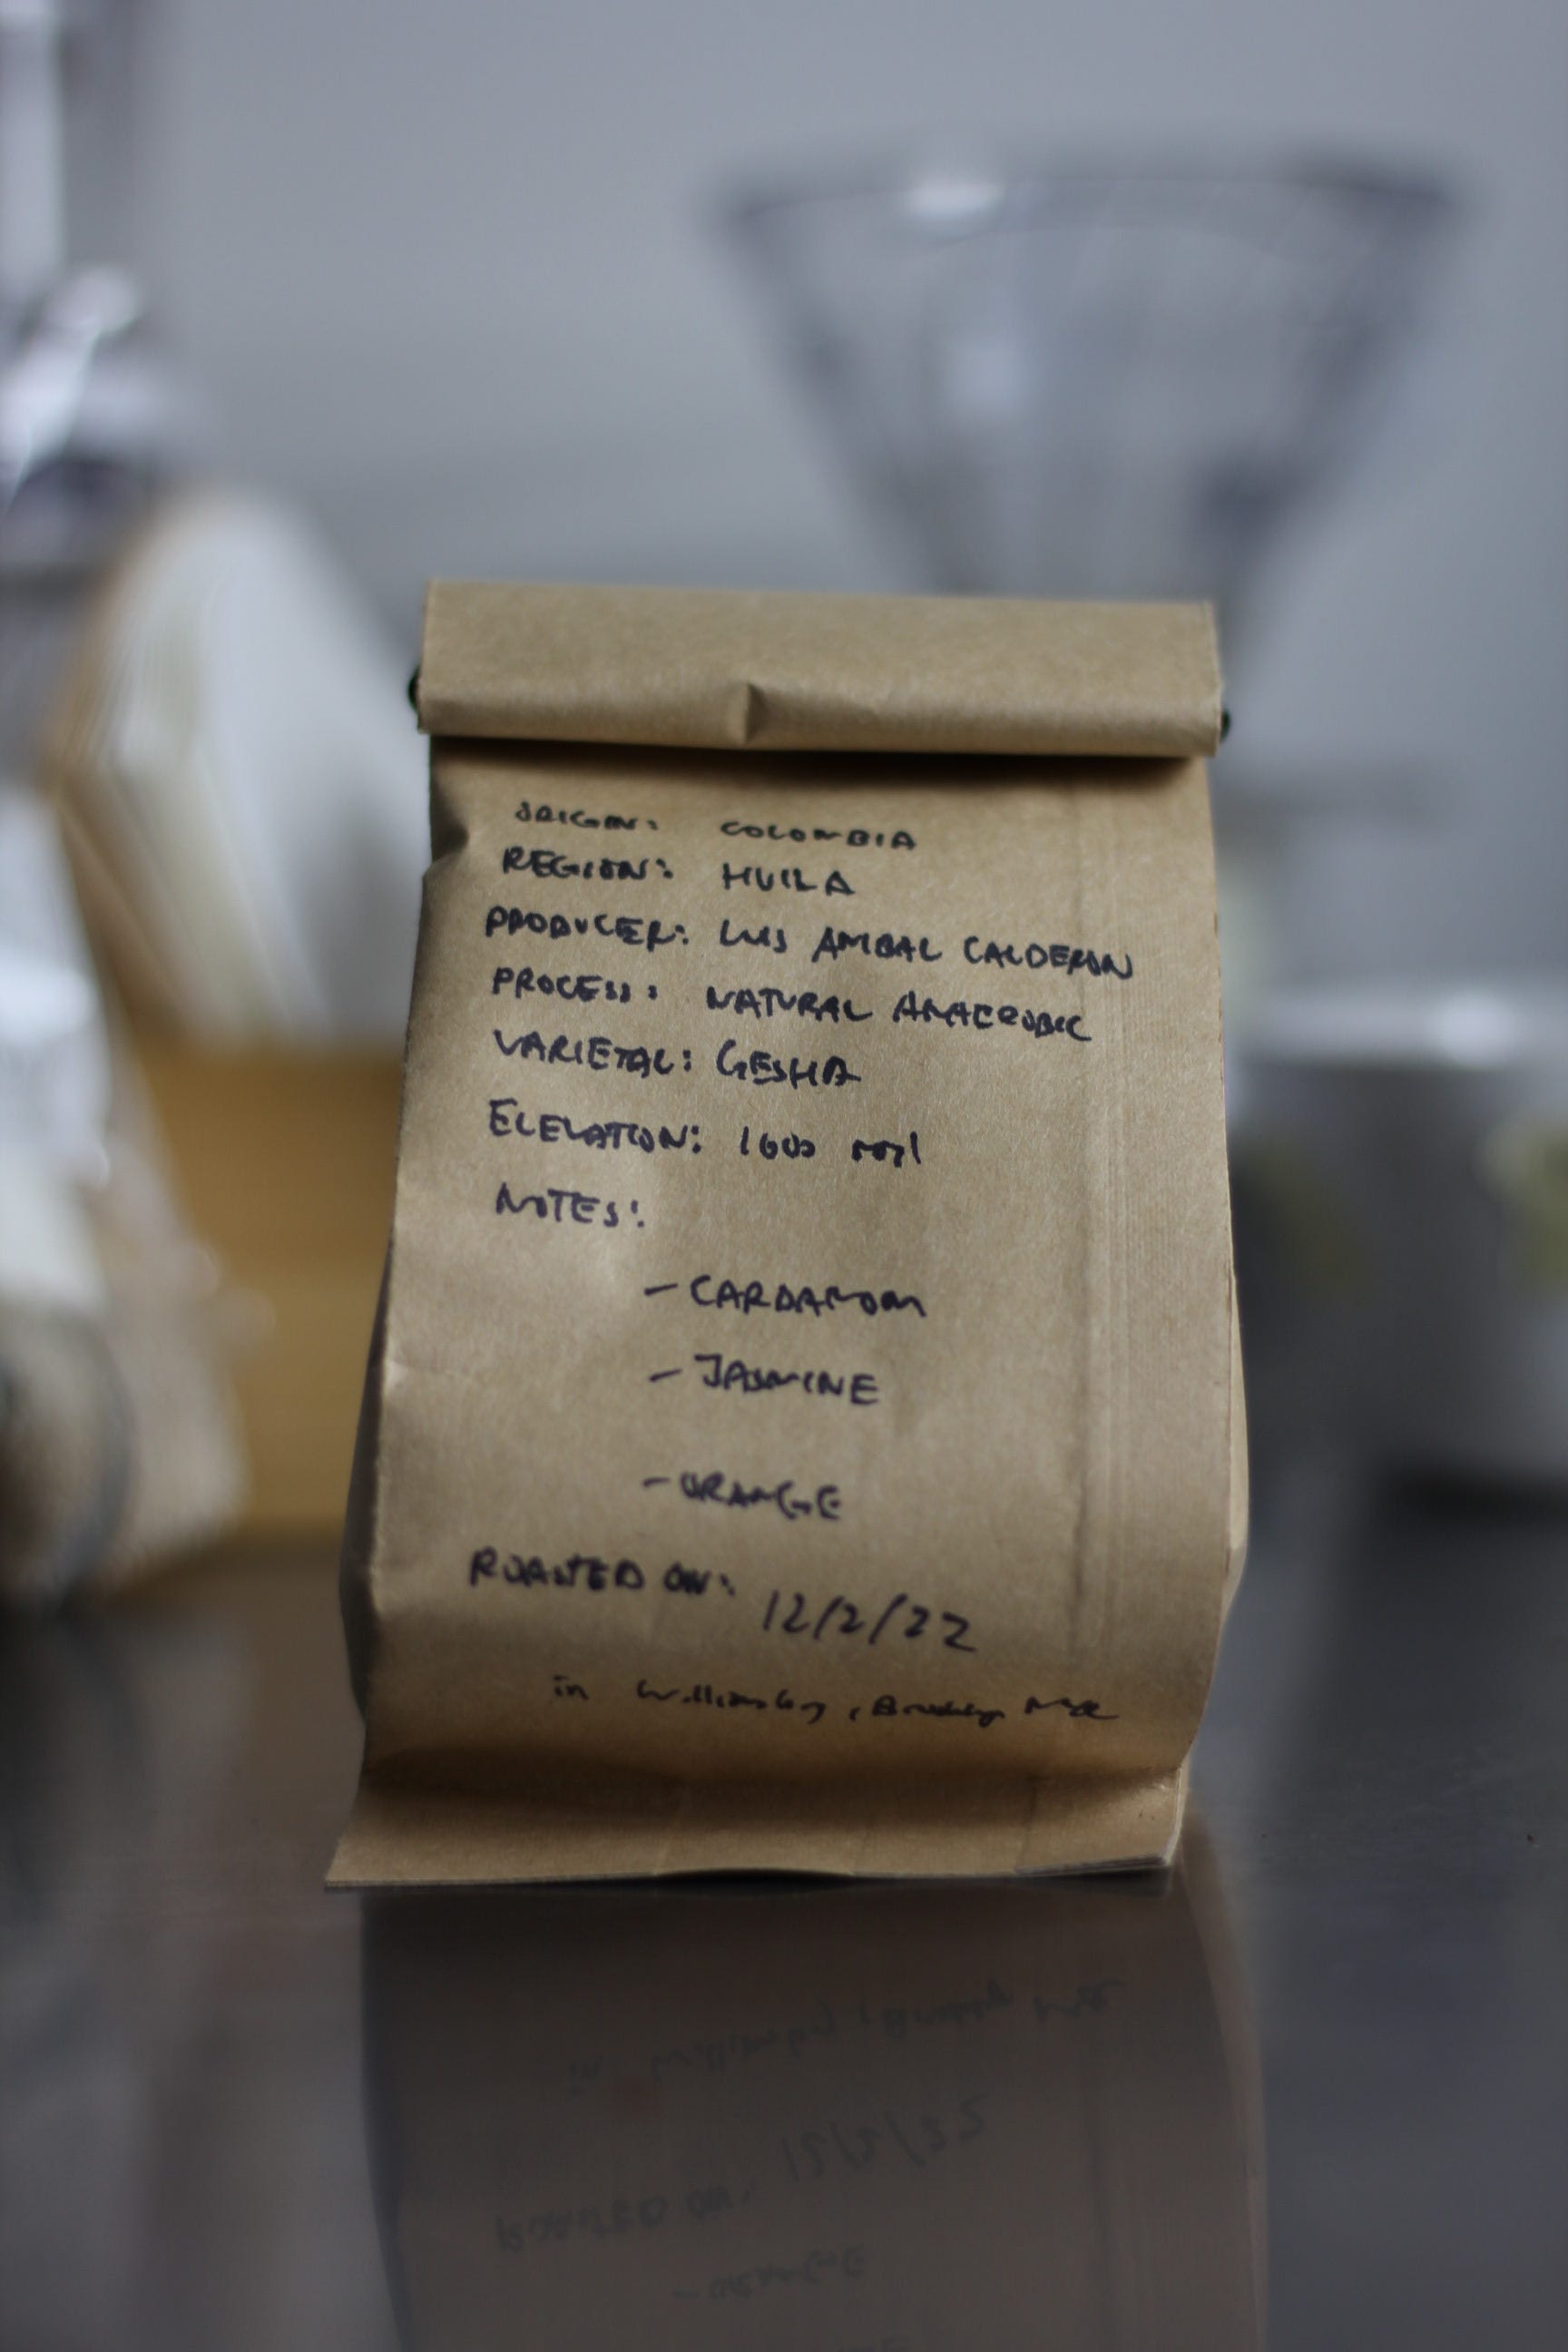 ORIGIN: COLOMBIA
REGION: HUILA
PRODUCER: LUIS ANIBAL CALDERON
PROCESS: NATURAL ANAEROBIC
VARIETAL: GESHA
ELEVATION: 1600 masl
NOTES:
- CARDAMOM
- JASMINE
- ORANGE
ROASTED ON: 12/2/22
in Williamsburg, Brooklyn